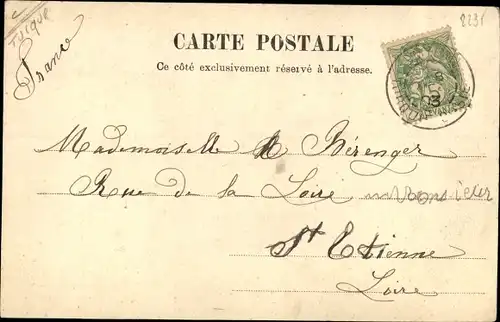 8231
France
CARTE POSTALE
Ce côté exclusivement réservé à l'adresse.
Mademoiselle Bérenger
Rue de la Loire
St Etienne
Loire